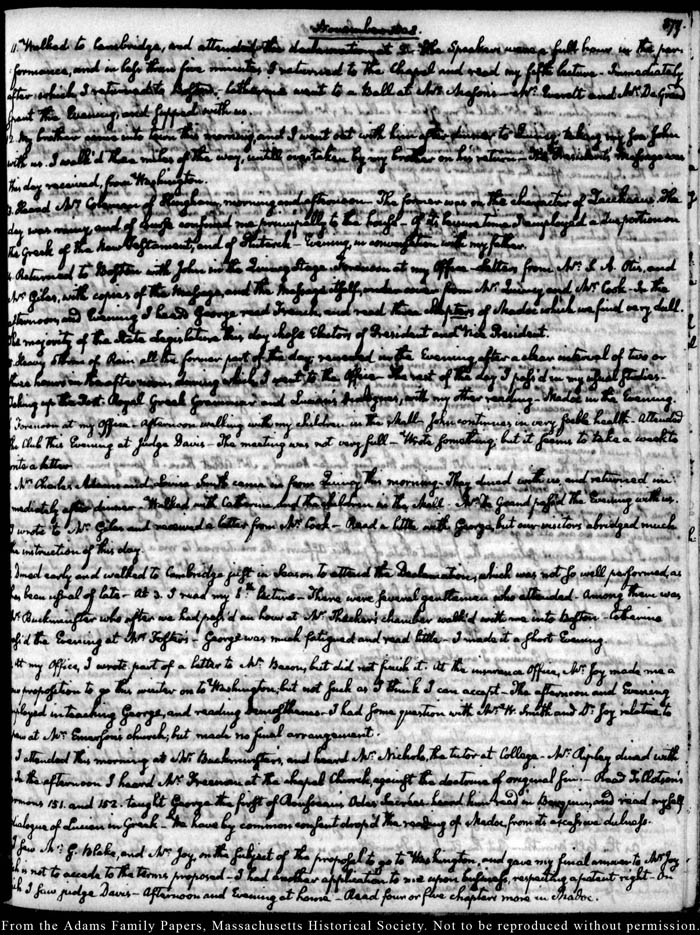 November 1808. 377.
11. Walked to Cambridge, and attended the declamation at 2. The Speakers were a full hour in the per-
formances, and in less than five minutes I returned to the Chapel and read my fifth lecture. Immediately
after which, I returned to Boston. Catherine went to a Ball at Mrs. Mason's. Mr. Everett and Mr. De Grand
spent this Evening, and supped with us.
12. My brother came into town this morning, and I went out with him after dinner to Quincy, taking my son John
with us. I walk'd three miles of the way, until overtaken by my brother on his return. The President's Message was
this day received, from Washington.
13. Heard Mr. Coleman of Hingham, morning and afternoon. The former was on the character of Zacchaeus. The
day was rainy, and of course confined me principally to the house. Of its leisure time I employed a portion on
the Greek of the New Testament, and of Plutarch. Evening, in conversation with my father.
Returned to Boston with John in the Quincy Stage. Forenoon at my Office. Letters from Mr. S. A. Otis, and
Mr. Giles, with copies of the Message, and the Message itself, under cover from Mr. Quincy and Mr. Cook. In the
afternoon and Evening I heard George read French, and read three chapters of Madoc which we find very dull.
The majority of the State Legislature this day chose Electors of President and Vice President.
Heavy storm of Rain all the former part of the day; renewed in the Evening after a clear interval of two or
three hours in the afternoon, during which I went to the Office. The rest of the day I pass'd in my usual studies.
Taking up the Port-Royal Greek Grammar and Lucian's Dialogues, with my other reading. Madoc in the Evening.
Forenoon at my Office. Afternoon walking with my children in the Mall. John continues in very feeble health. Attended
the Club this Evening at Judge Davis. The meeting was not very full. Wrote something, but it seems to take a week to
write a letter.
Mr. Charles Adams and Louisa Smith came in from Quincy this morning. They dined with us, and returned im-
mediately after dinner. Walked with Catherine and the children in the Mall. Mr. De Grand pass'd the Evening with us.
I wrote to Mr. Giles and received a letter from Mr. Cook. Read a little with George, but our visitors abridged much
the instruction of this day.
Dined early and walked to Cambridge just in season to attend the Declamations, which was not so well performed, as
has been usual of late. At 3. I read my 6th lecture. There were several gentlemen who attended. Among them was
Mr. Buckminster who after we had pass'd an hour at Mr. Thacher's chamber walk'd with me into Boston. Catherine
pass'd the Evening at Mr. Foster's. George was much fatigued and read little. I made it a short Evening.
At my Office, I wrote part of a letter to Mr. Bacon, but did not finish it. At the insurance Office, Mr. Joy made me a
proposition to go this winter on to Washington; but not such as I think I can accept. The afternoon and Evening
employed in teaching George, and reading Demosthenes. I had some question with Mr. W. Smith and Dr. Joy relative to
pew at Mr. Emerson's church, but made no final arrangement.
I attended this morning at Mr. Buckminster's, and heard Mr. Nichols, the tutor at College. Mr. Ripley dined with
In the afternoon I heard Mr. Freeman, at the chapel Church, against the doctrine of original sin. Read Tillotson's
sermons 151. and 152. taught George the first of Rousseau's Odes Sacrées heard him read in and read myself
dialogue of Lucian in Greek. We have by common consent drop'd the reading of Madoc from its excessive dulness.
I saw Mr. G. Blake, and Mr. Joy, on the subject of the proposal to go to Washington, and gave my final answer to Mr. Joy,
which is not to accede to the terms proposed. I had another application to me upon business, respecting a patent right. On
which I saw judge Davis. Afternoon and Evening at home. Read four or five chapters more in Madoc.
From the Adams Family Papers, Massachusetts Historical Society. Not to be reproduced without permission